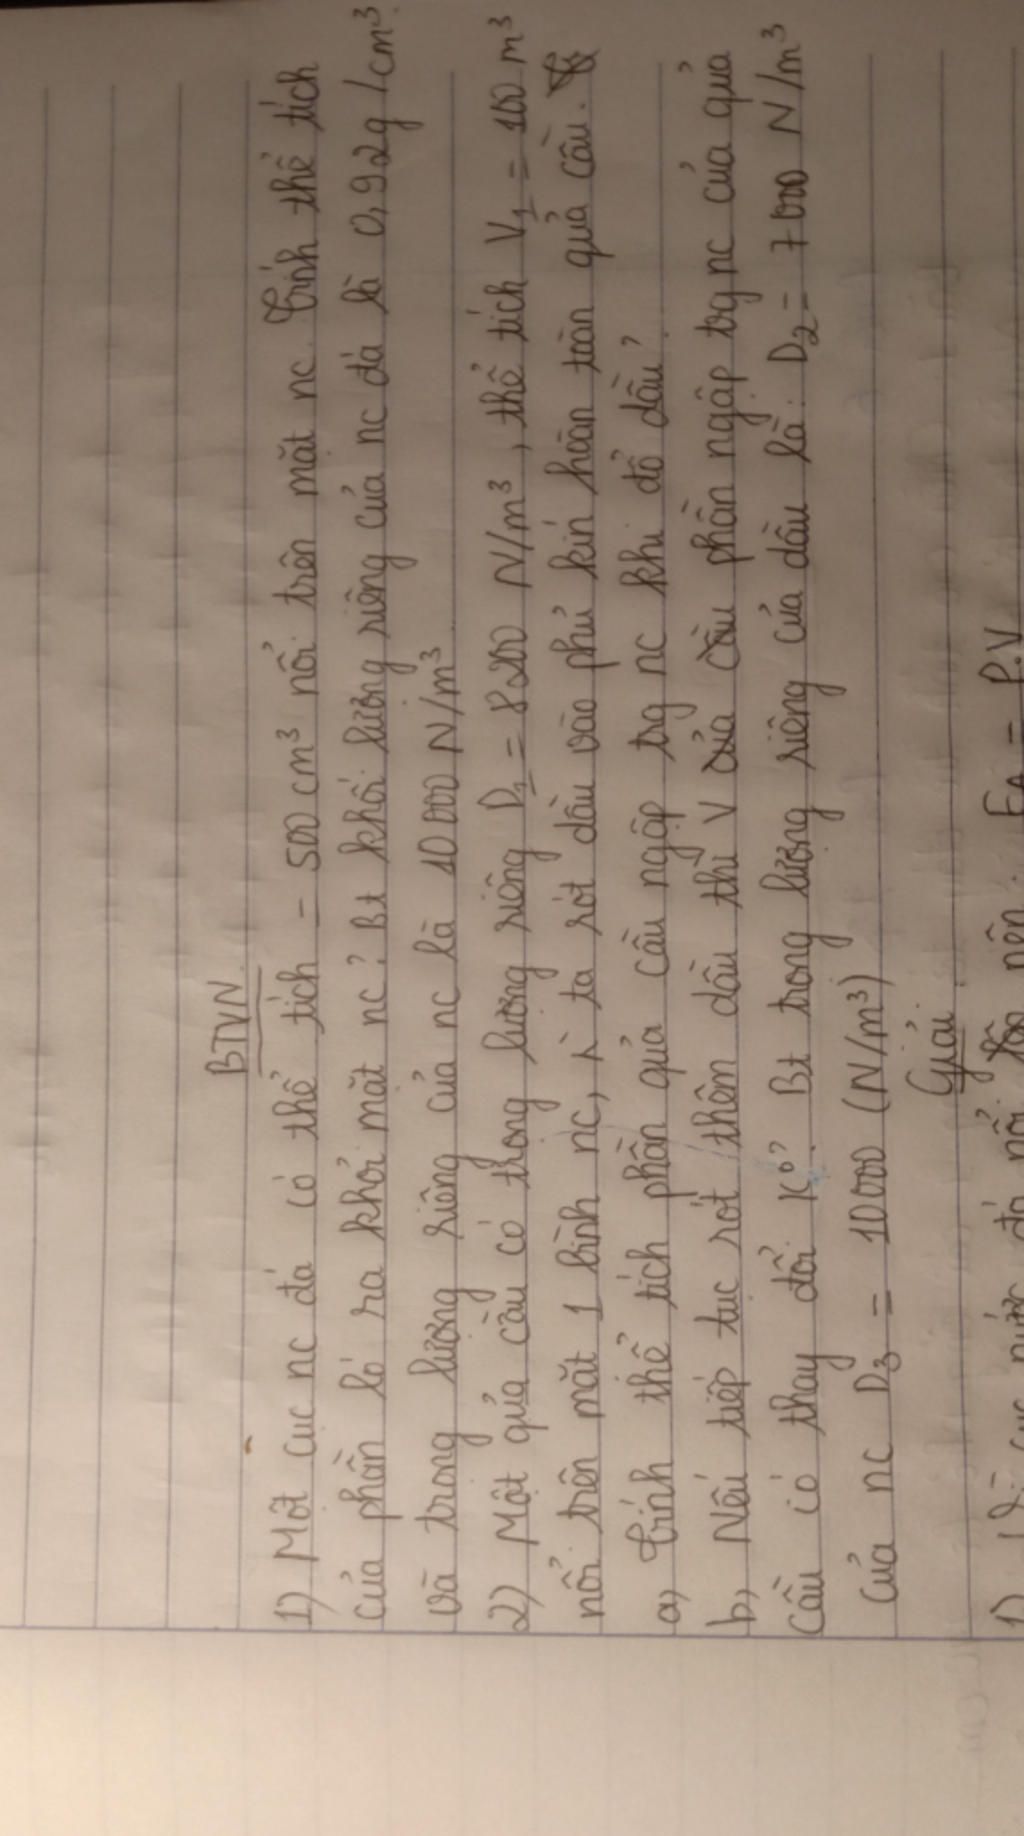 BTVN
1) Một cục nc đá có thể tích = 500 cm³ nổi trên mặt nc. Tính thể tích
của phần ló ra khỏi mặt nc? Bt khối lượng riêng của nc đá là 0,92g/cm³
và trong lượng riêng của nc là 10000 N/m³
2) Một quả cầu có trong lượng riêng D₁ = 8200 N/m³, thể tích V₁ = 100 m³
nổi trên mặt 1 bình nc, ta rót dầu vào phủ kín hoàn toàn quả cầu.
a) Tính thể tích phần quả cầu ngập trg nc khi đổ dầu?
b) Nếu tiếp tục rót thêm dầu thì V của cầu phần ngập trg nc của quả
cầu có thay đổi K⁰? Bt trong lượng riêng của dầu là: D₂ = 7000 N/m³
của nc D₃ = 10000 (N/m³)
Giải
1) Vì cục nước đá nổi nên: FA = P.V